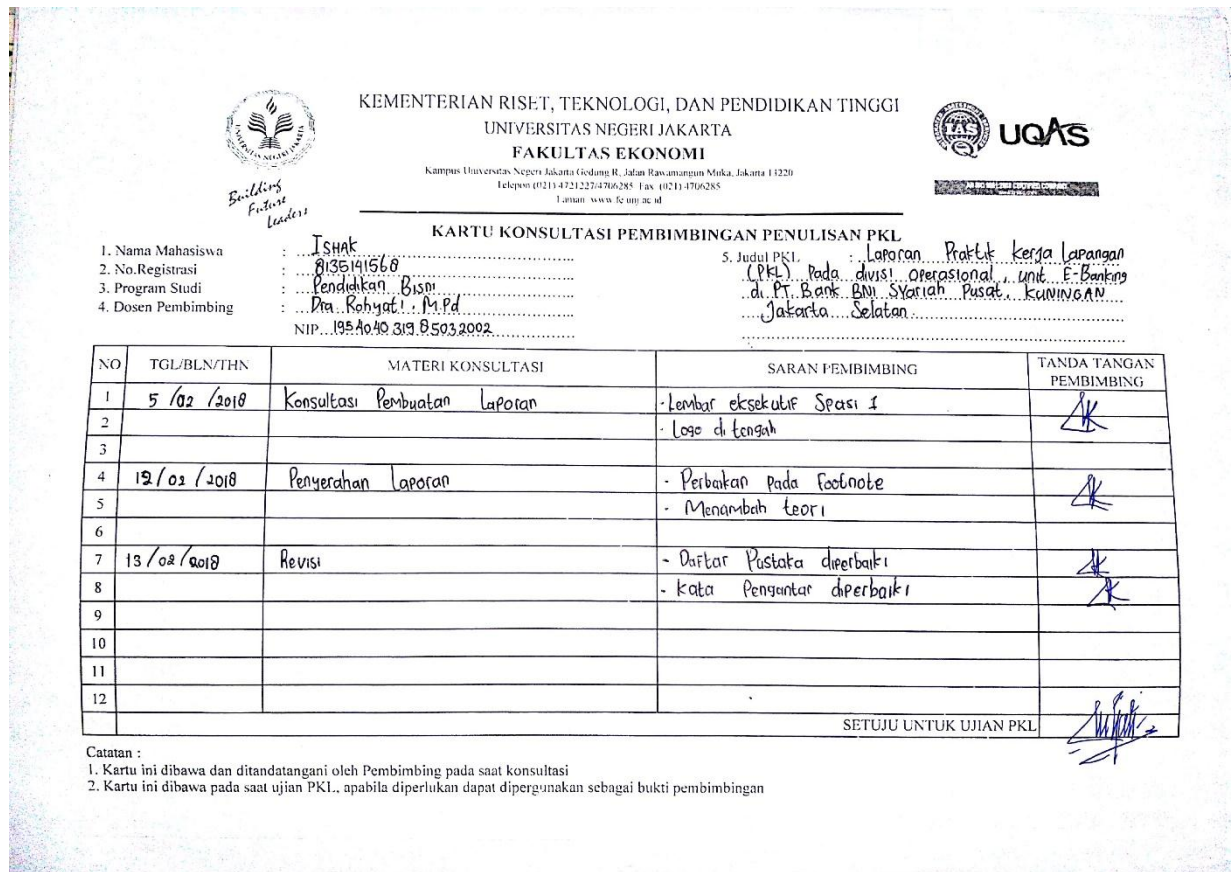 KEMENTERIAN RISET, TEKNOLOGI, DAN PENDIDIKAN TINGGI
UNIVERSITAS NEGERI JAKARTA
FAKULTAS EKONOMI
Kampus Universitas Negeri Jakarta Gedung R, Jalan Rawamangun Muka, Jakarta 13220
Telepon (021) 4721227/4706285 Fax (021) 4706285
Laman www.fe.unj.ac.id
UNIVERSITAS NEGERI JAKARTA
Building
Future
Leaders
IAS
UQAS
KARTU KONSULTASI PEMBIMBINGAN PENULISAN PKL
1. Nama Mahasiswa : Ishak
2. No.Registrasi : 8135141568
3. Program Studi : Pendidikan Bisni
4. Dosen Pembimbing : Dra. Rohyati, M.Pd
NIP. 195404031985032002
5. Judul PKL : Laporan Praktik Kerja Lapangan
(PKL) Pada divisi operasional, unit E-Banking
di PT. Bank BNI Syariah Pusat, KUNINGAN
Jakarta Selatan
NO TGL/BLN/THN MATERI KONSULTASI SARAN PEMBIMBING TANDA TANGAN PEMBIMBING
1 5/02/2018 Konsultasi Pembuatan Laporan - Lembar eksekutif Spasi 1
2 - Logo di tengah
3
4 12/02/2018 Penyerahan Laporan - Perbaikan pada Footnote
5 - Menambah teori
6
7 13/02/2018 Revisi - Daftar Pustaka diperbaiki
8 - Kata Pengantar diperbaiki
9
10
11
12
SETUJU UNTUK UJIAN PKL
Catatan :
1. Kartu ini dibawa dan ditandatangani oleh Pembimbing pada saat konsultasi
2. Kartu ini dibawa pada saat ujian PKL, apabila diperlukan dapat dipergunakan sebagai bukti pembimbingan